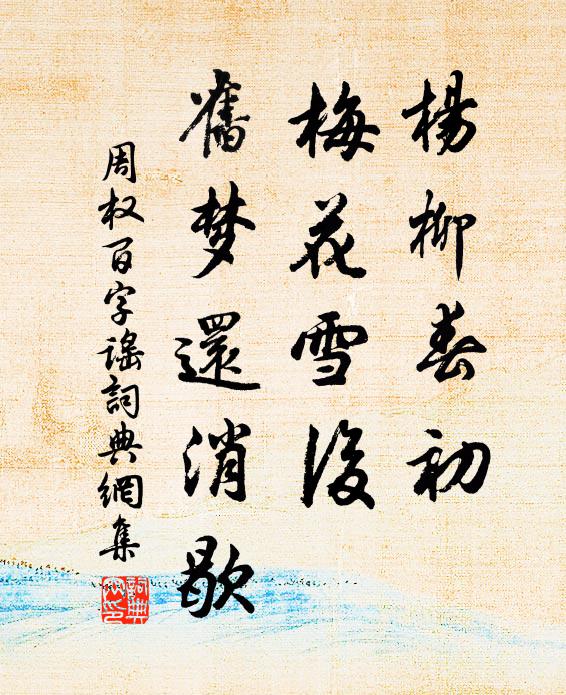 楊柳春初
梅花雪後
舊梦還消歇
周权百字謠詞典網集